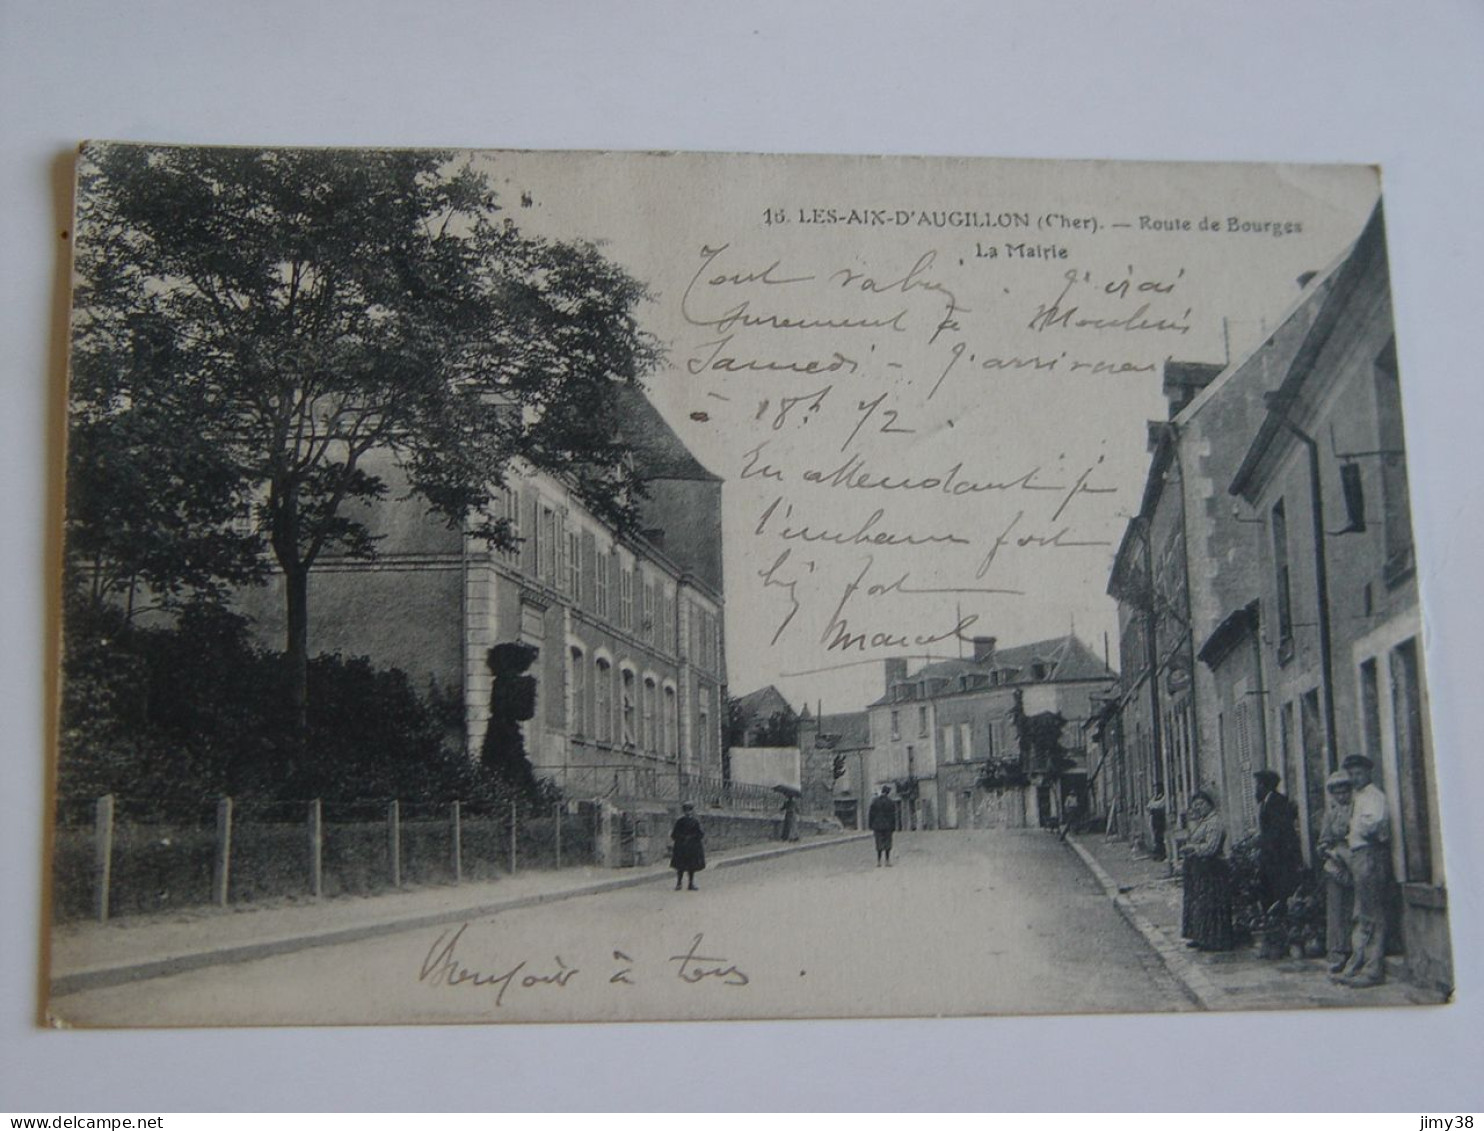 16. LES-AIX-D'AUGILLON (Cher). — Route de Bourges
La Mairie
Tout . J'irai
surement à Moulins
Samedi - J'arriverai
à 18h 1/2 .
En attendant je
t'embrasse fort
fort
Marcel
Bonsoir à tous .
delcampe.net
jimy38